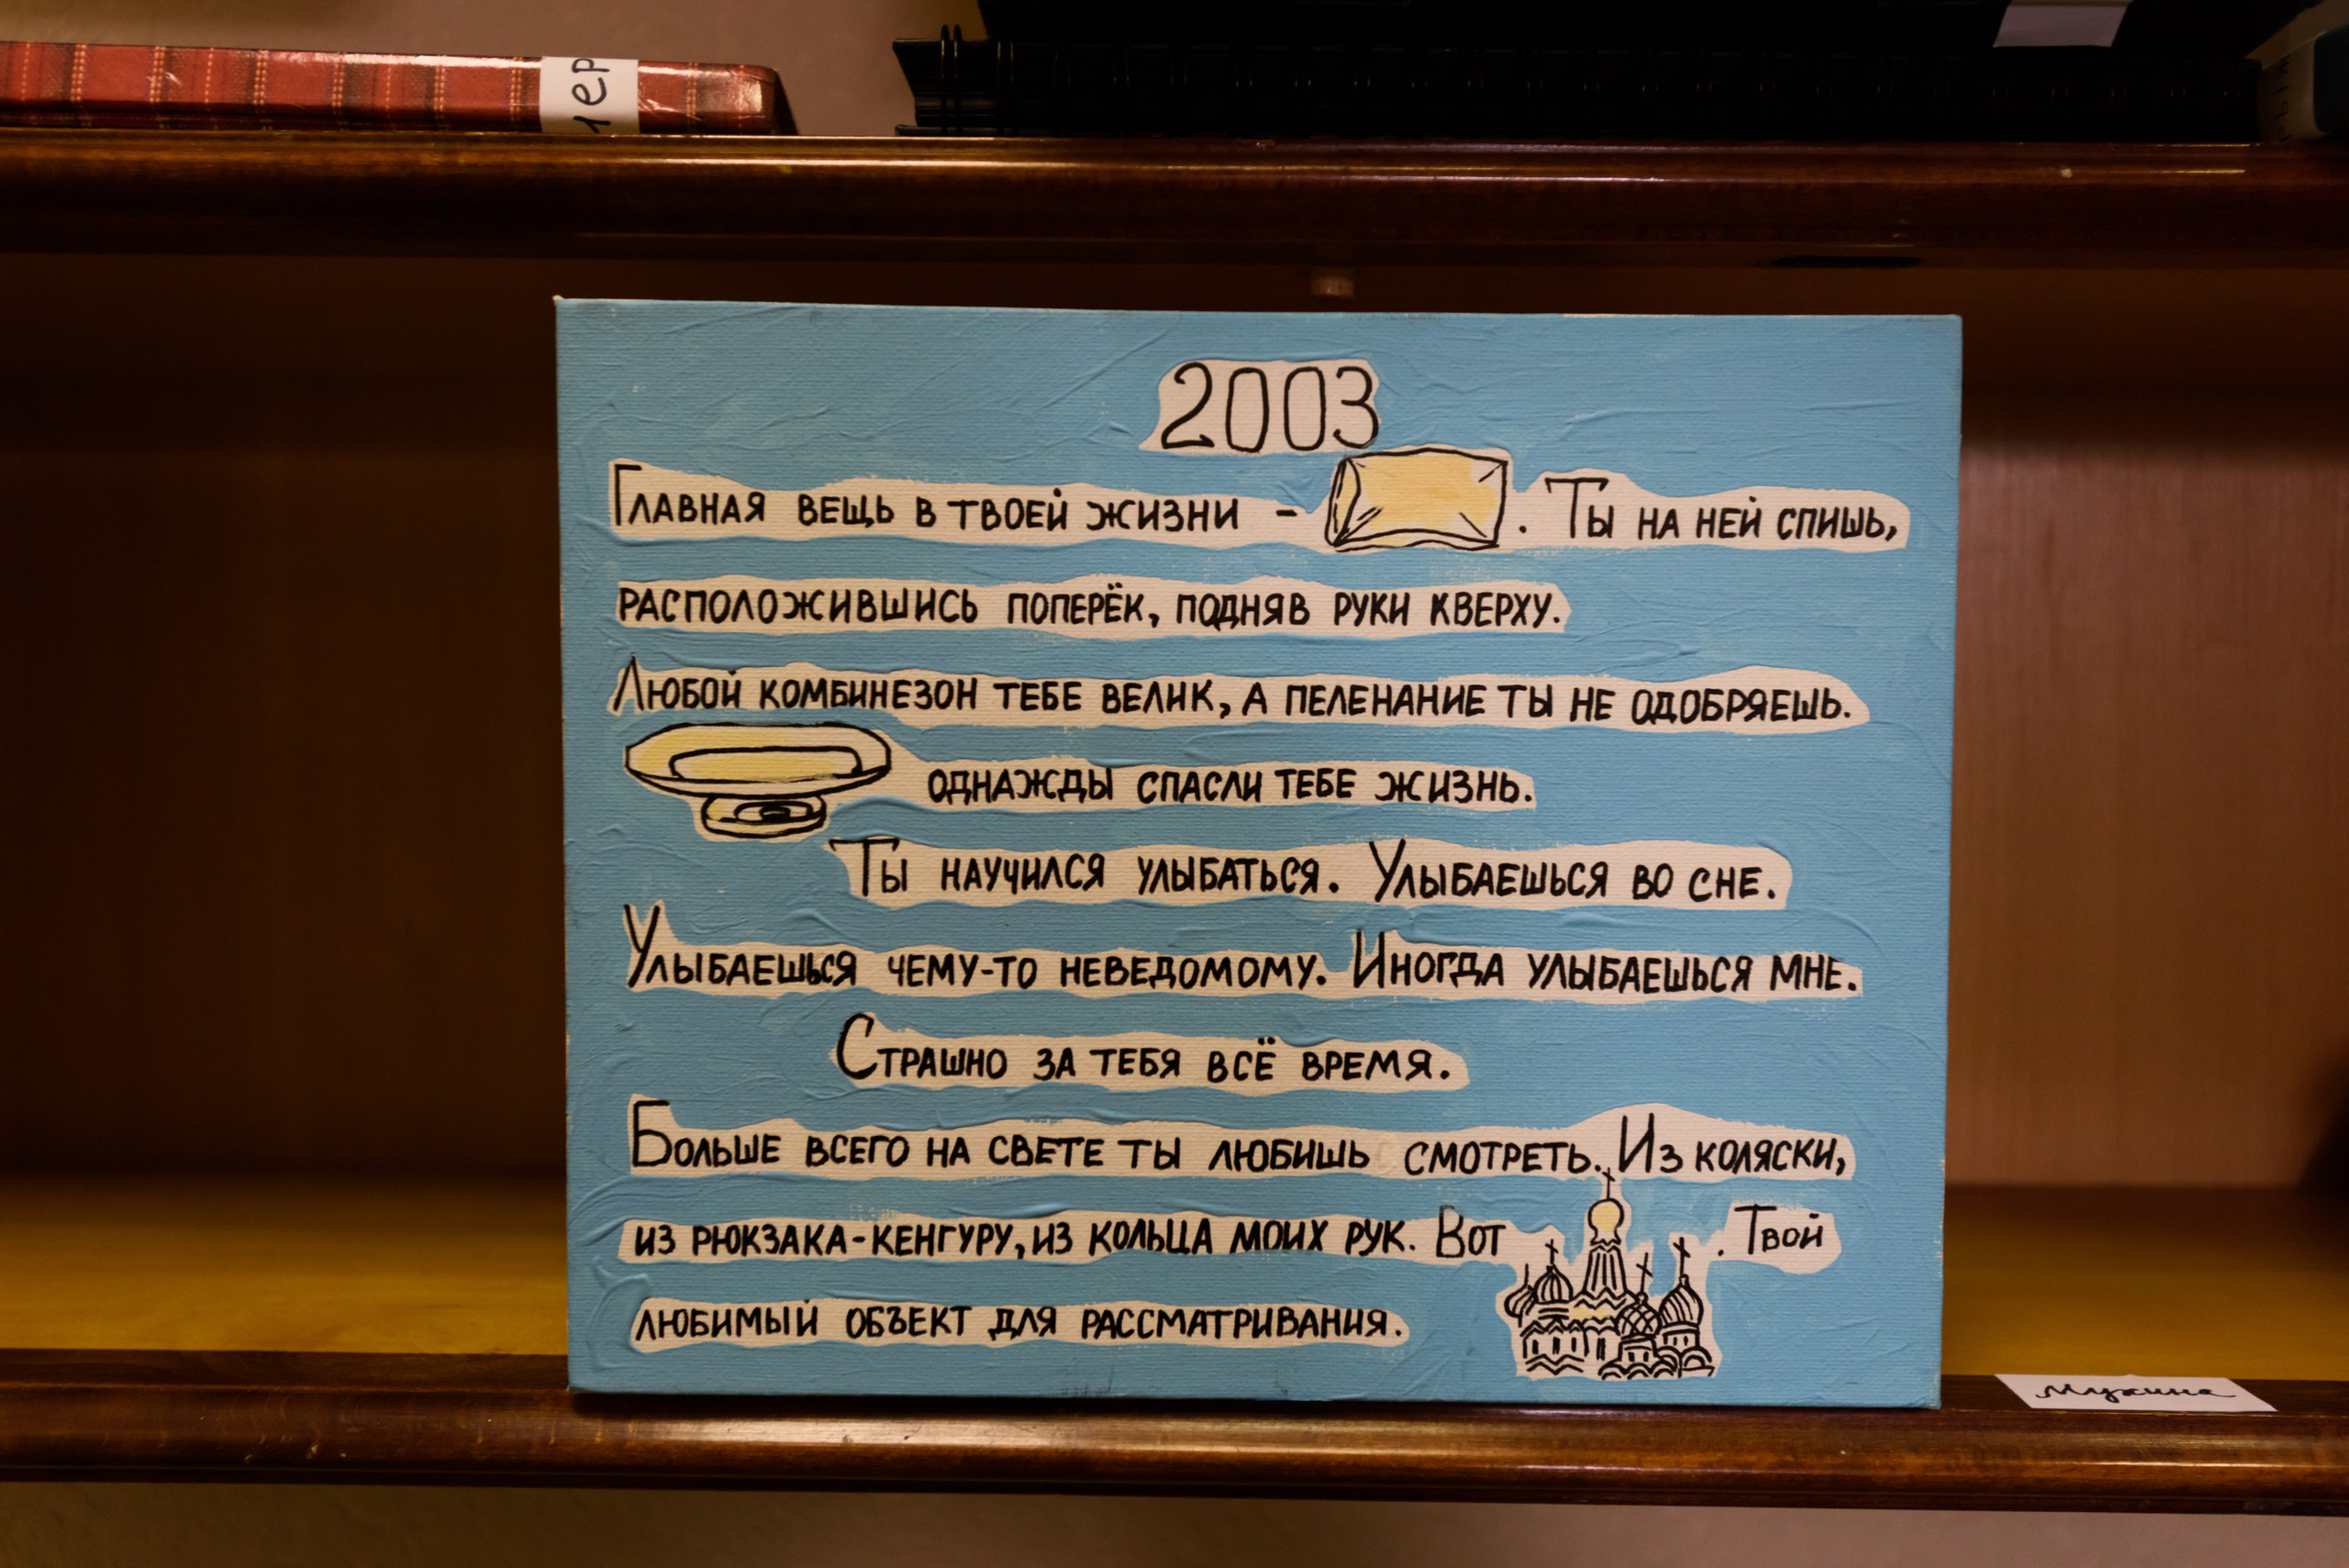 лер
2003
Главная вещь в твоей жизни - . Ты на ней спишь,
расположившись поперёк, подняв руки кверху.
Любой комбинезон тебе велик, а пеленание ты не одобряешь.
однажды спасли тебе жизнь.
Ты научился улыбаться. Улыбаешься во сне.
Улыбаешься чему-то неведомому. Иногда улыбаешься мне.
Страшно за тебя всё время.
Больше всего на свете ты любишь смотреть. Из коляски,
из рюкзака-кенгуру, из кольца моих рук. Вот . Твой
любимый объект для рассматривания.
Мухина